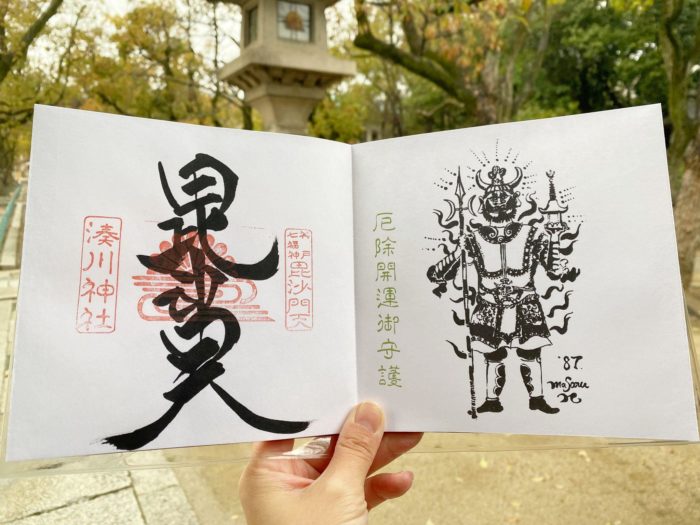 神戸
七福神
毘沙門天
毘沙門天
湊川神社
厄除開運御守護
'87.
Masaru